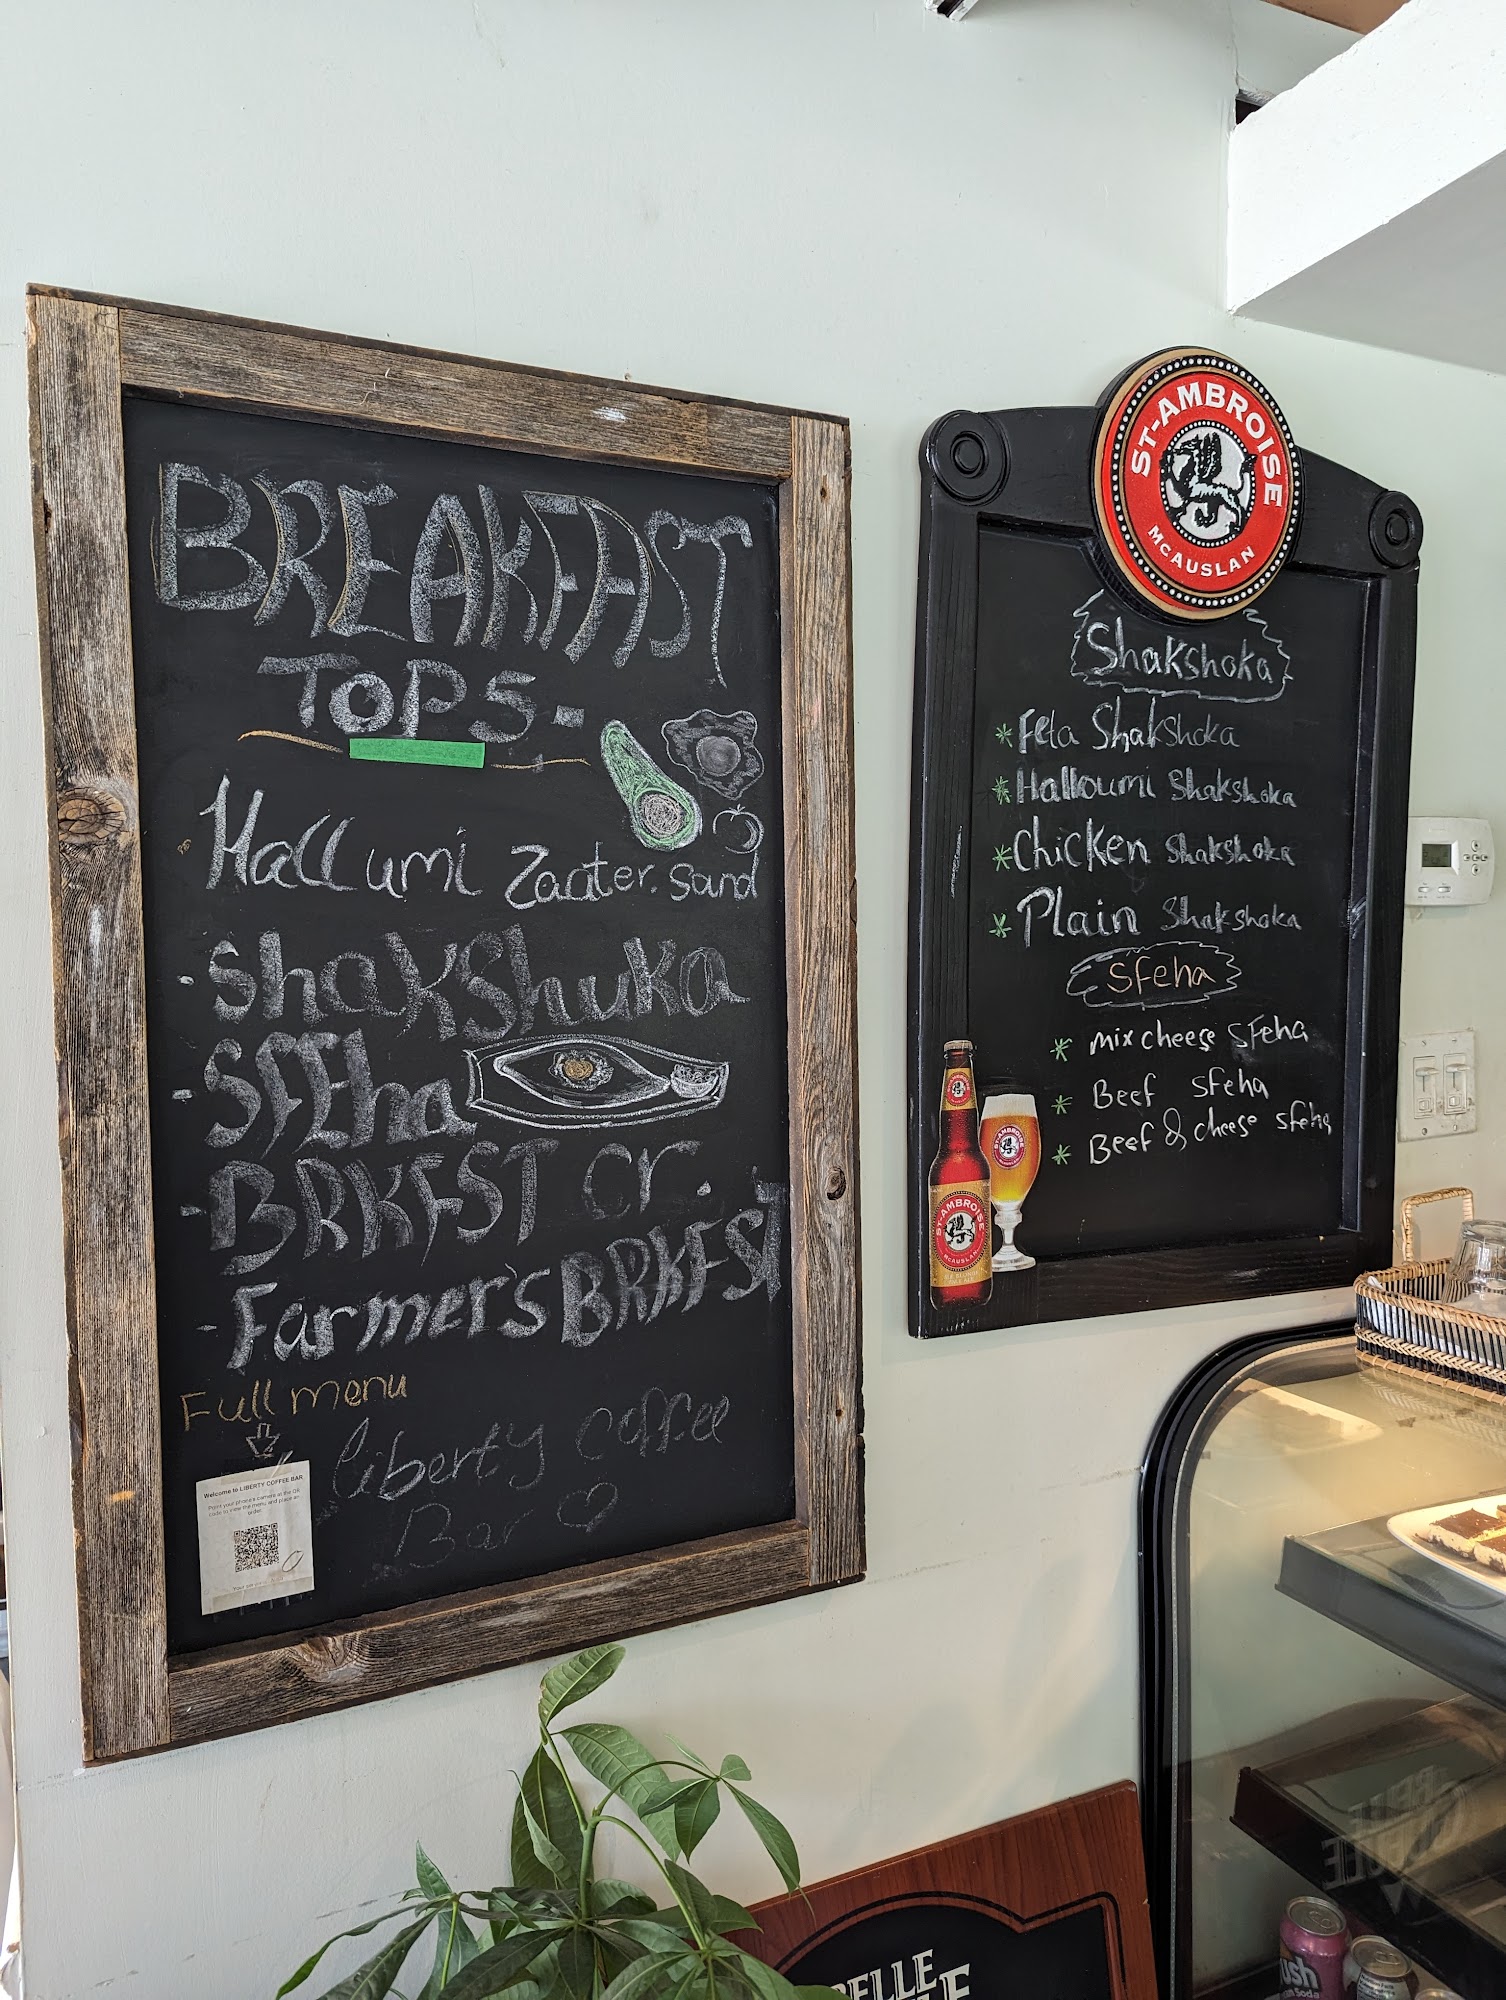 BREAKFAST
TOP 5-
Hallumi Zaater. Sand
- Shakshuka
- SFEha
- BRKFST Cr.
- Farmer's BRKFST
Full menu
Liberty Coffee
Bar
Welcome to LIBERTY COFFEE BAR
Point your phone's camera at the QR
code to view the menu and place an
order.
ST-AMBROISE
MCAUSLAN
Shakshoka
* Feta Shakshoka
* Halloumi Shakshoka
* Chicken Shakshoka
* Plain Shakshoka
Sfeha
* mix cheese SFeha
* Beef sfeha
* Beef & cheese sfeha
ST-AMBROISE
MCAUSLAN
ST-AMBROISE
BELLE
ush